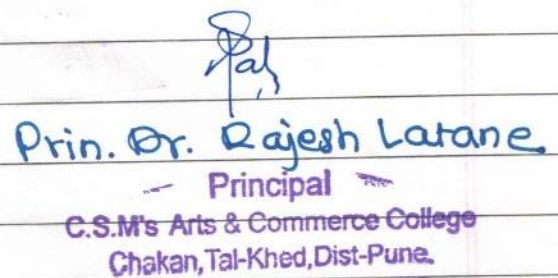 Prin. Dr. Rajesh Latane
Principal
C.S.M's Arts & Commerce College
Chakan, Tal-Khed, Dist-Pune.